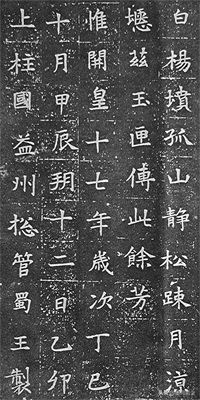 白楊墳孤山静松踈月涼
瘞兹玉匣傳此餘芳
惟開皇十七年歲次丁巳
十月甲辰朔十二日乙卯
上柱國益州揔管蜀王製